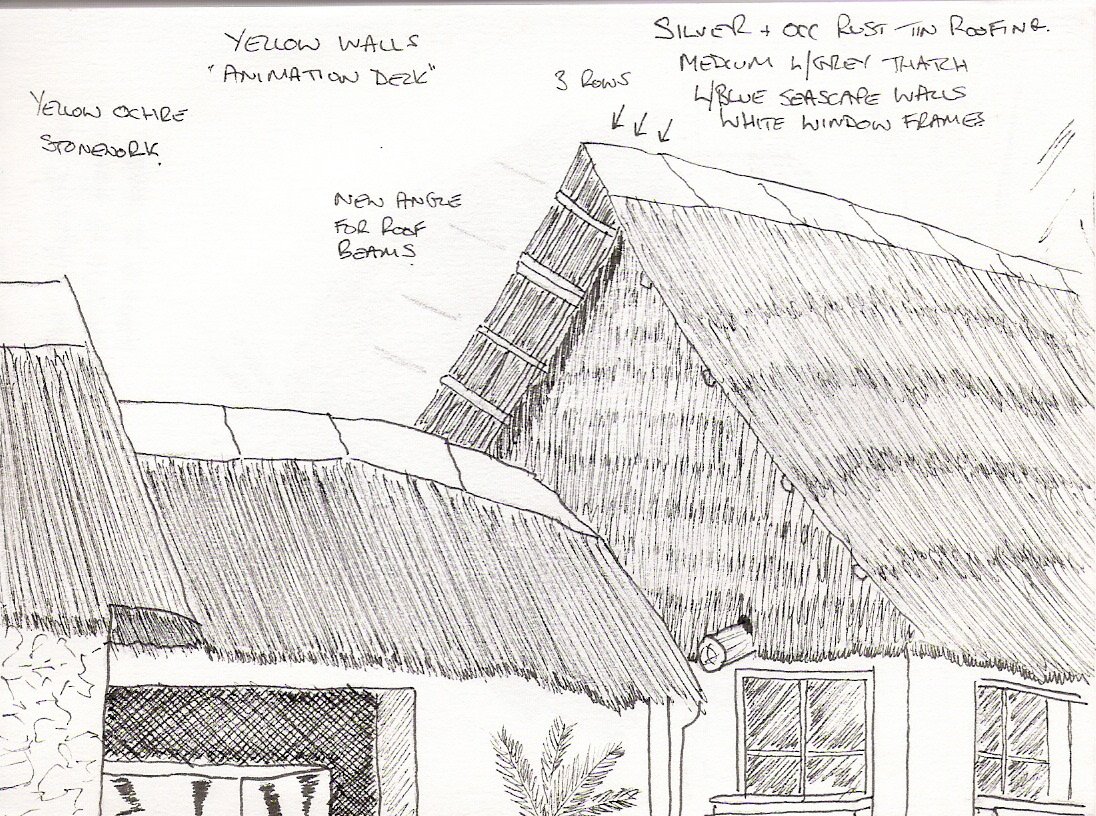 YELLOW WALLS
"ANIMATION DESK"
YELLOW OCHRE
STONEWORK.
NEW ANGLE
FOR ROOF
BEAMS.
3 ROWS
SILVER + OCC RUST TIN ROOFING.
MEDIUM L/GREY THATCH
L/BLUE SEASCAPE WALLS
WHITE WINDOW FRAMES